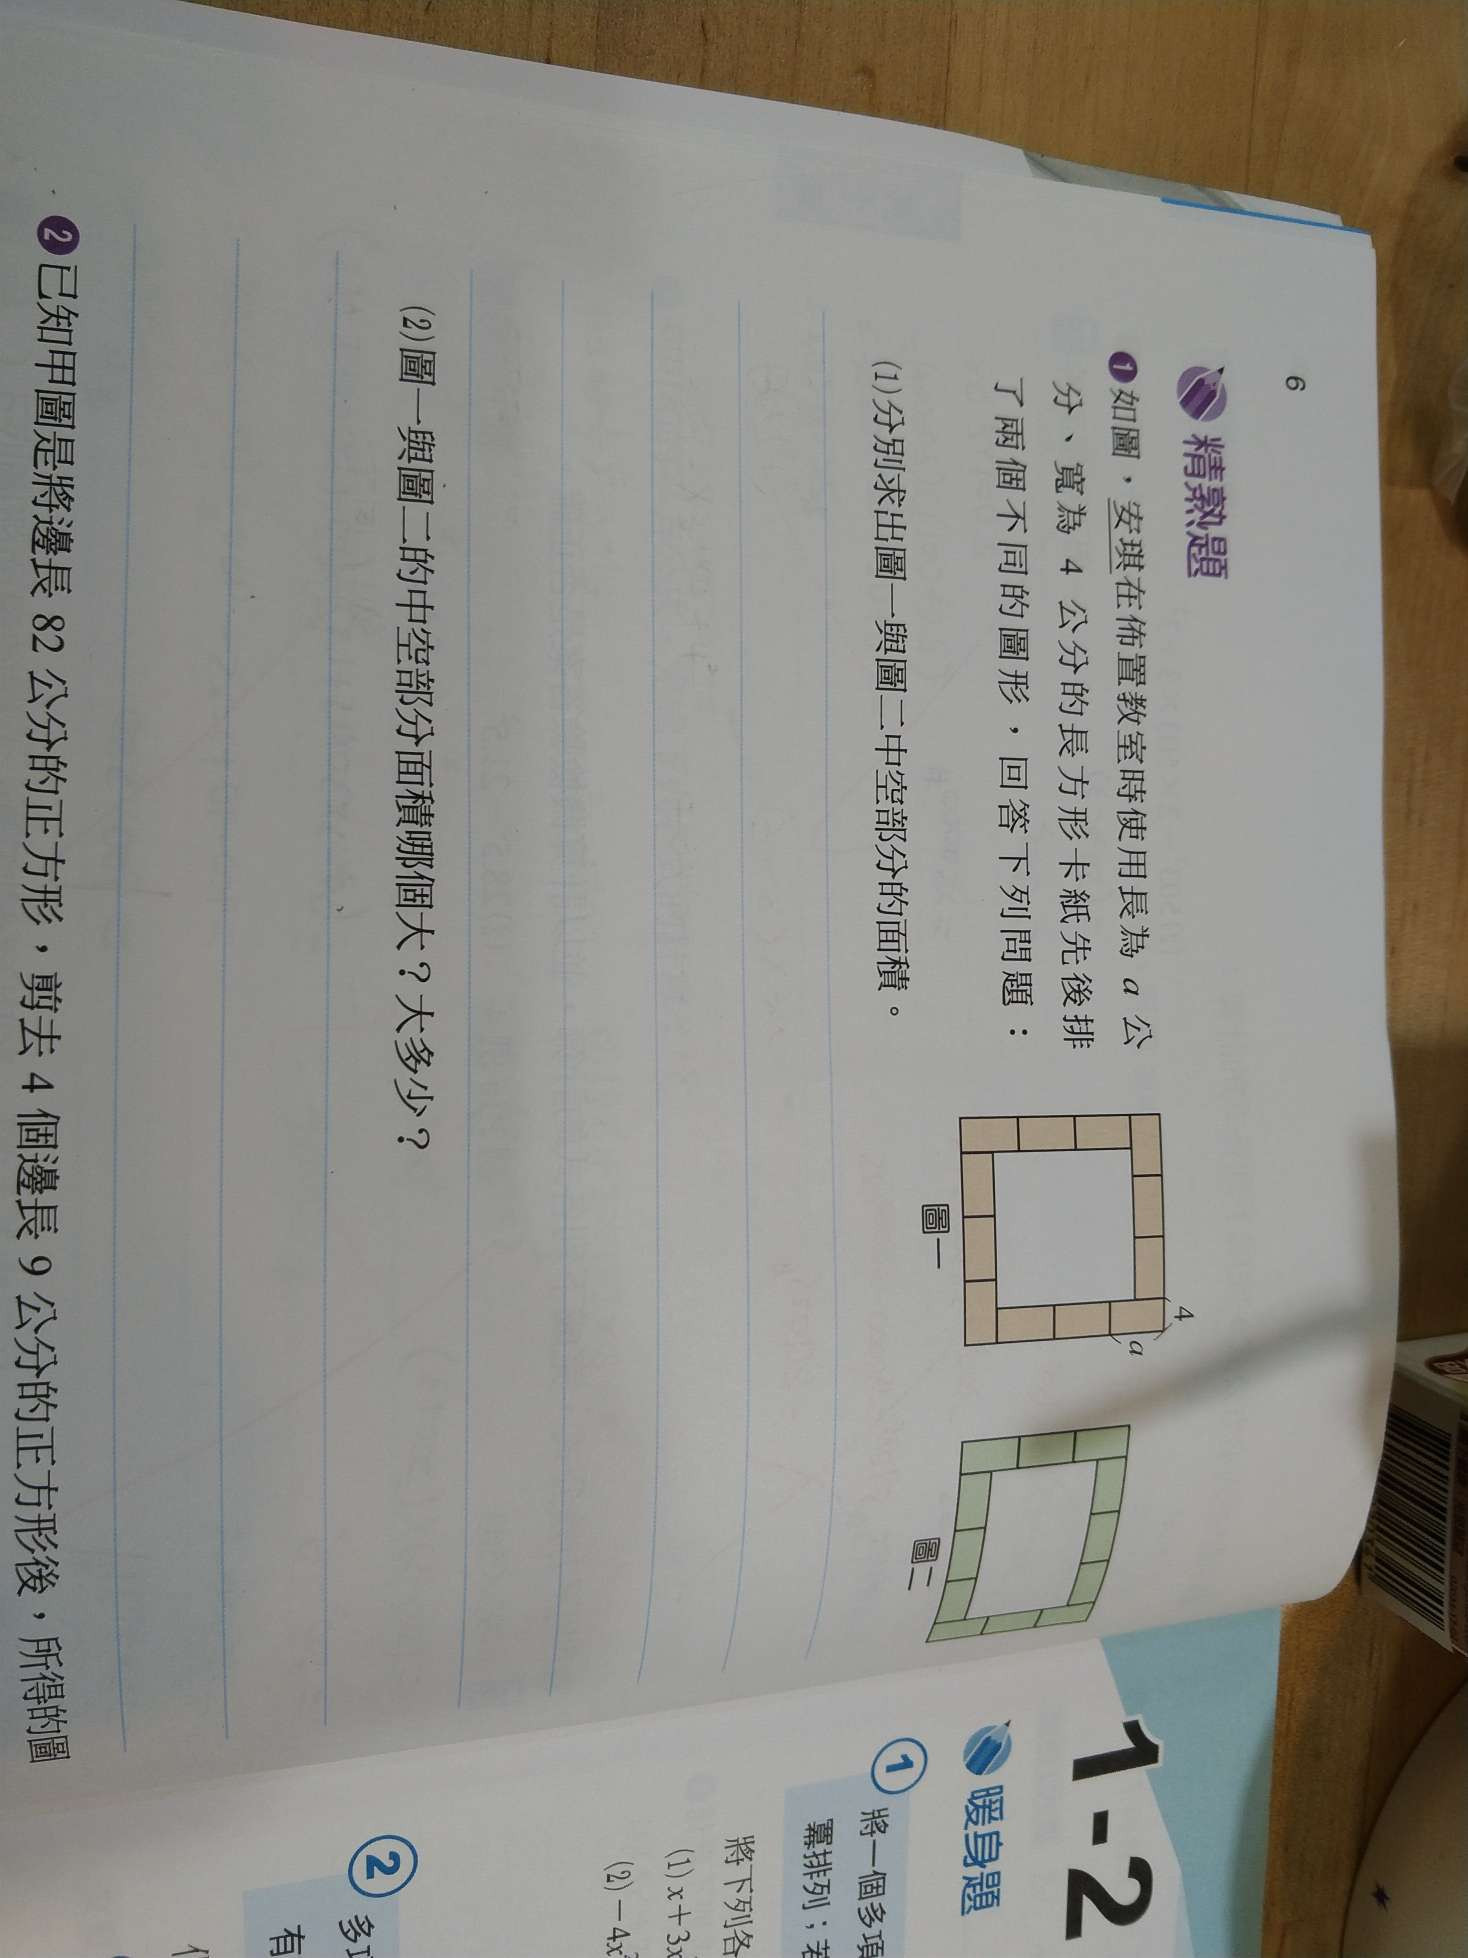 6
精熟題
❶如圖，安琪在佈置教室時使用長為 a 公
分、寬為 4 公分的長方形卡紙先後排
了兩個不同的圖形，回答下列問題：
4
a
圖一
圖二
(1)分別求出圖一與圖二中空部分的面積。
(2)圖一與圖二的中空部分面積哪個大？大多少？
❷已知甲圖是將邊長 82 公分的正方形，剪去 4 個邊長 9 公分的正方形後，所得的圖
1-2
暖身題
① 將一個多項
冪排列；若
將下列各
(1) x＋3x
(2) －4x
② 多項
有